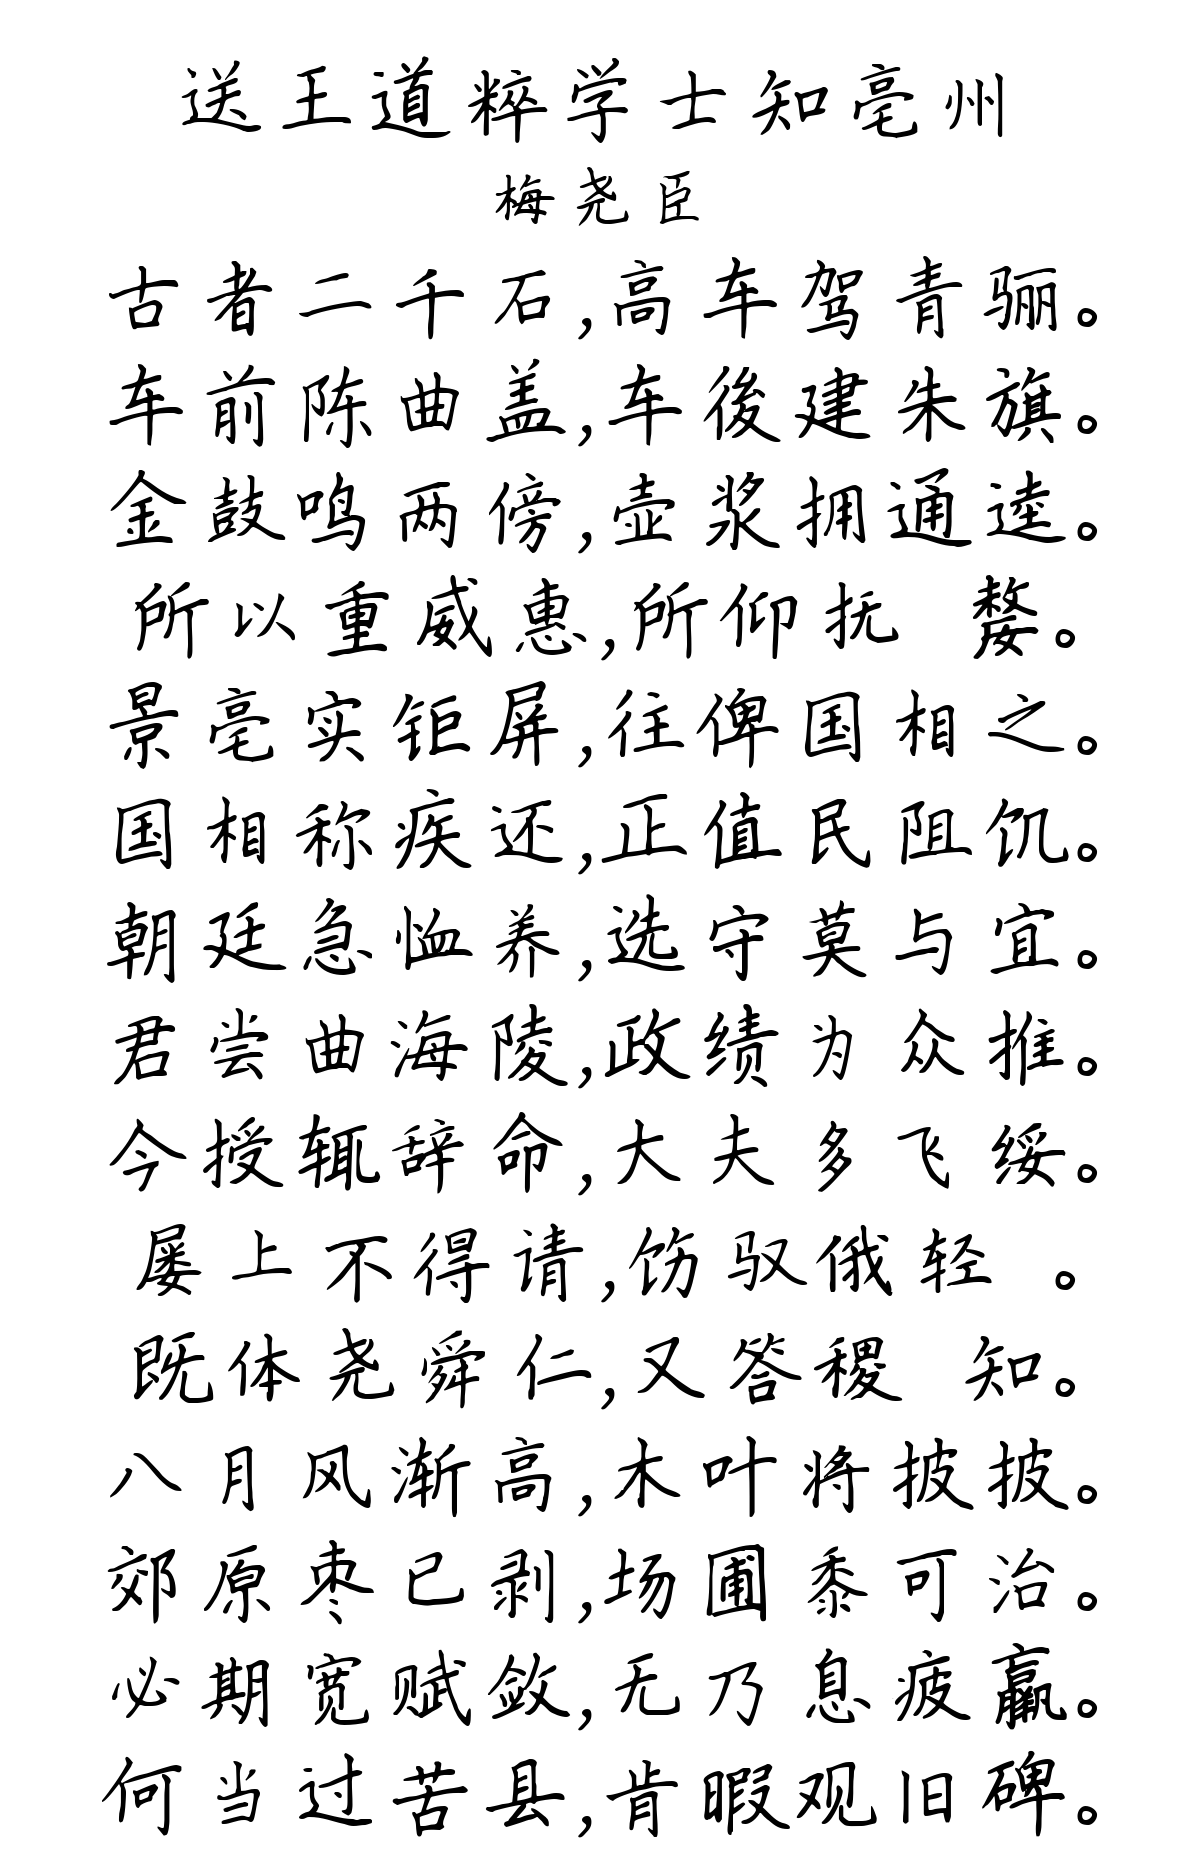 送王道粹学士知亳州
梅尧臣
古者二千石,高车驾青骊。
车前陈曲盖,车後建朱旗。
金鼓鸣两傍,壶浆拥通逵。
所以重威惠,所仰抚 嫠。
景亳实钜屏,往俾国相之。
国相称疾还,正值民阻饥。
朝廷急恤养,选守莫与宜。
君尝曲海陵,政绩为众推。
今授辄辞命,大夫多飞绥。
屡上不得请,饬驭俄轻 。
既体尧舜仁,又答稷 知。
八月风渐高,木叶将披披。
郊原枣已剥,场圃黍可治。
必期宽赋敛,无乃息疲羸。
何当过苦县,肯暇观旧碑。